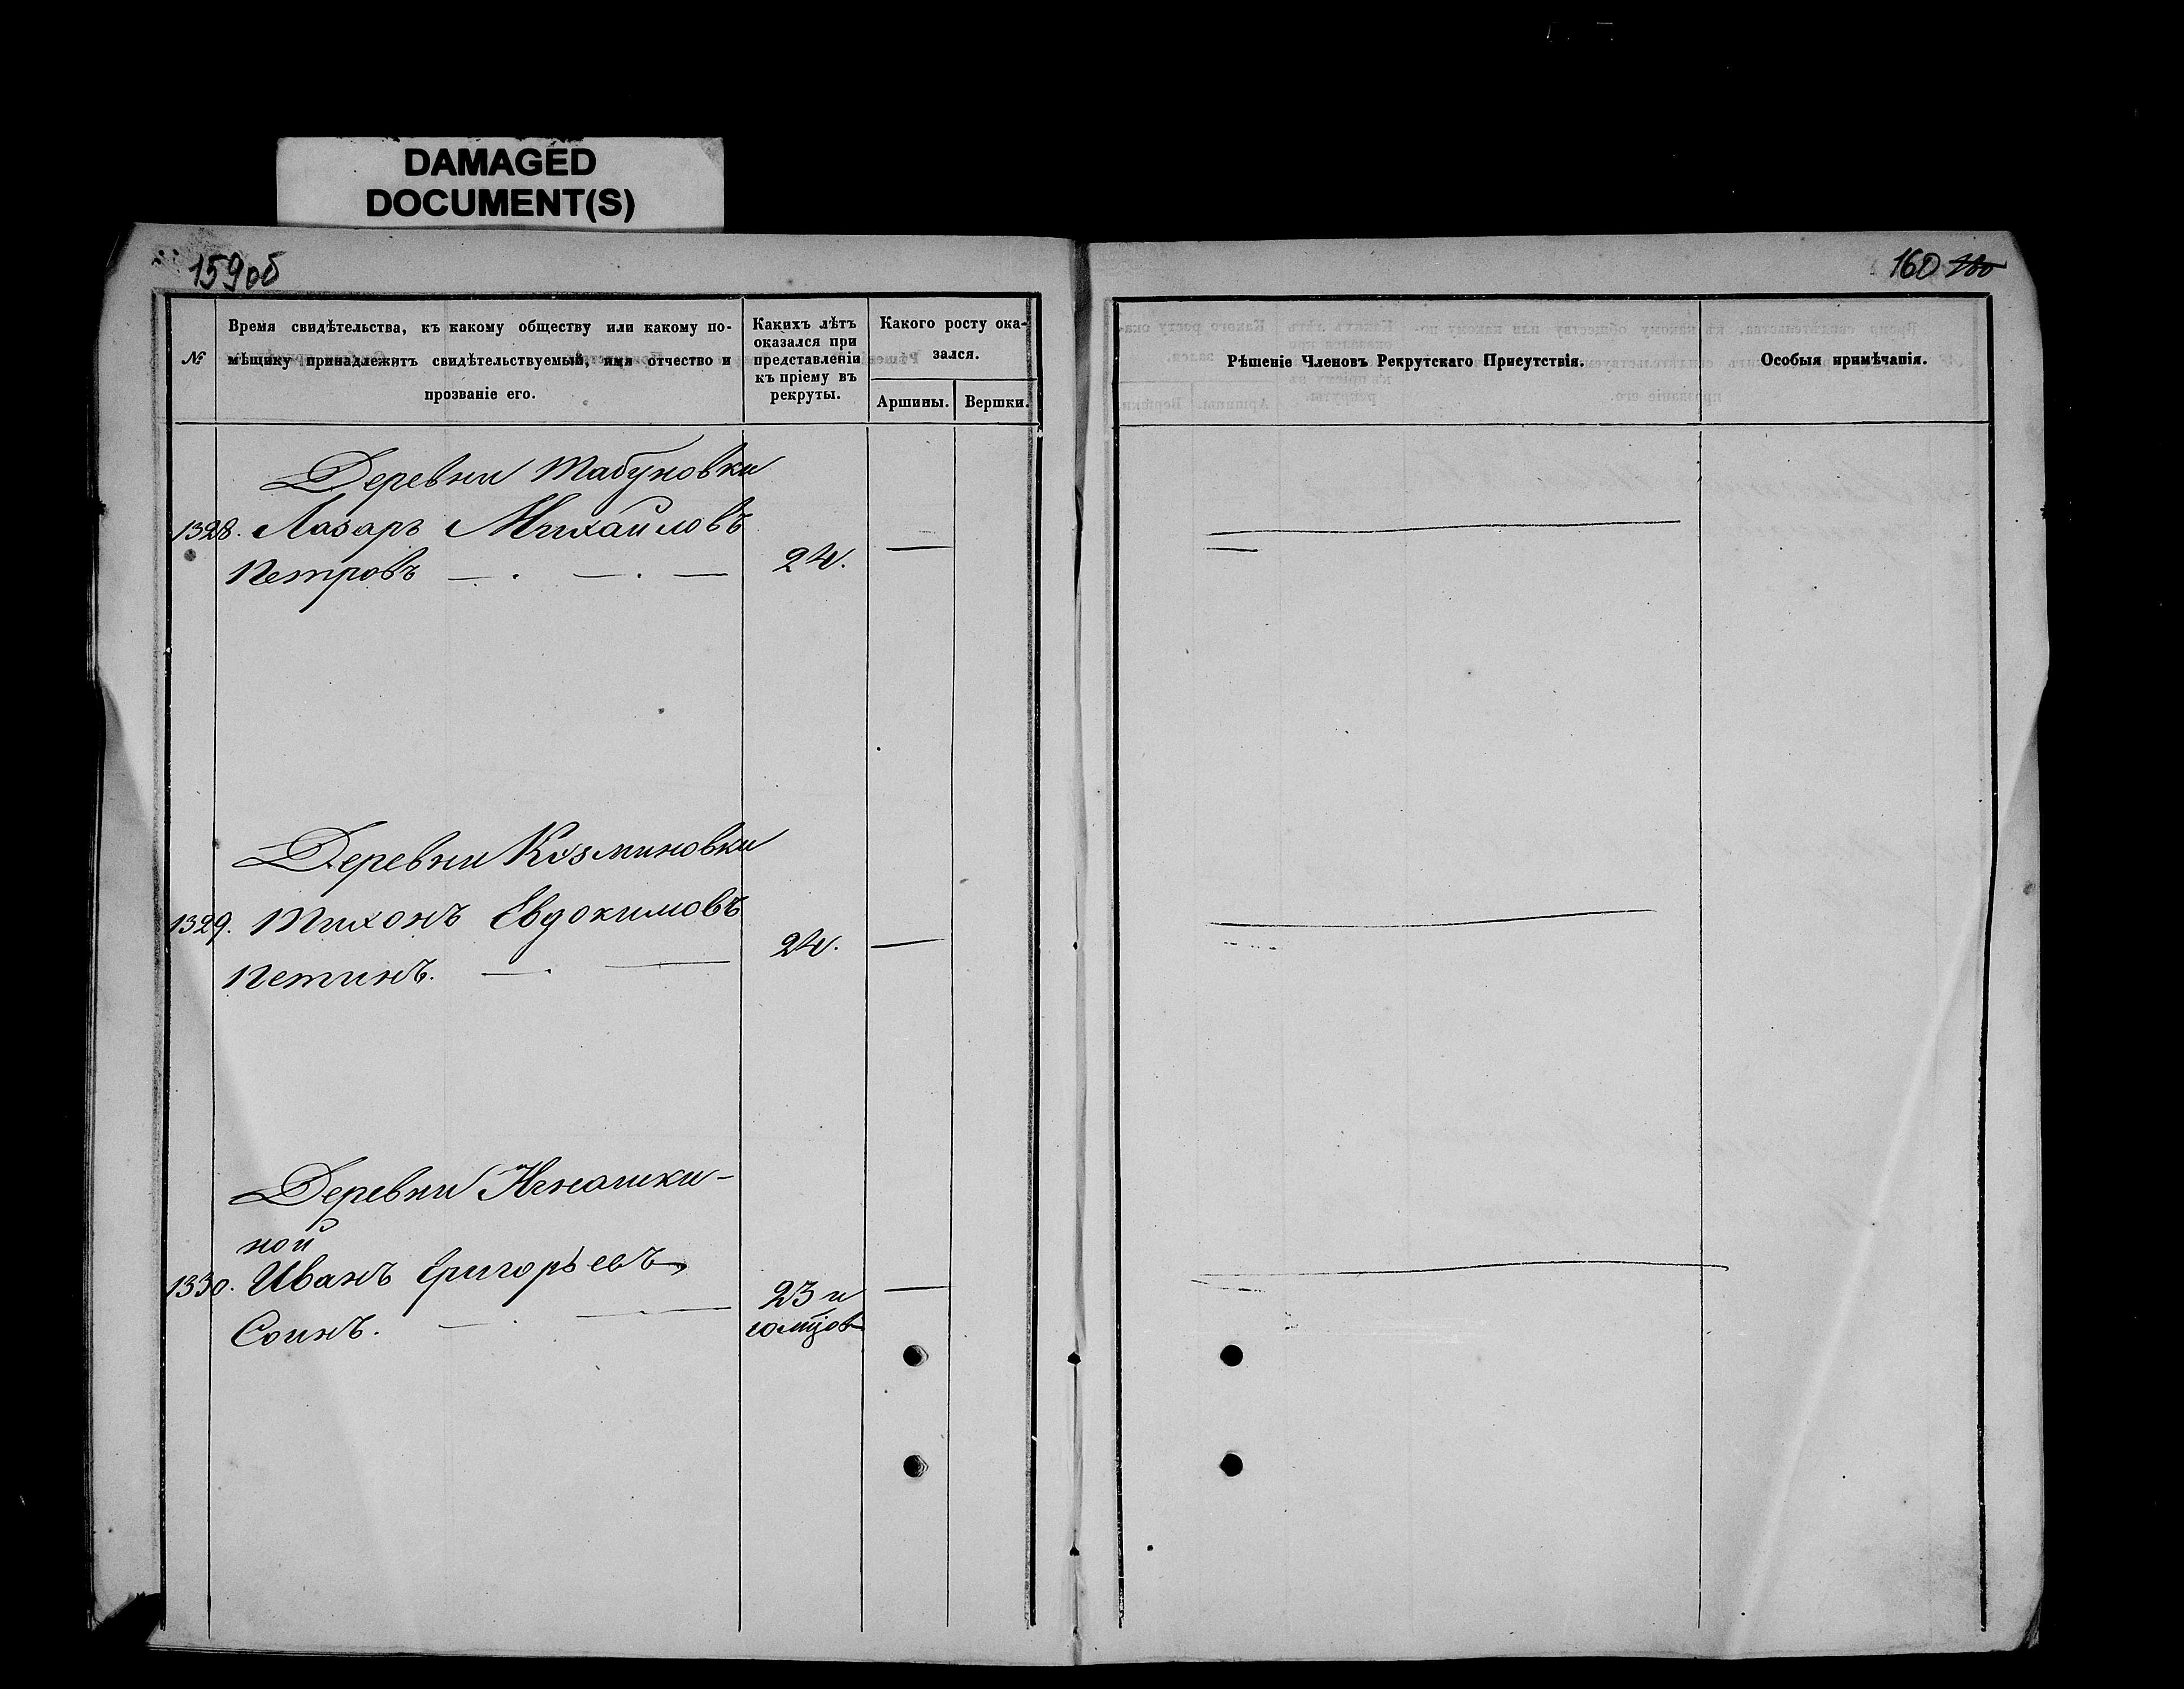 DAMAGED
DOCUMENT(S)
159об
№
Время свидѣтельства, къ какому обществу или какому по-
мѣщику принадлежитъ свидѣтельствуемый, имя отчество и
прозваніе его.
Какихъ лѣтъ
оказался при
представленіи
къ пріему въ
рекруты.
Какого росту ока-
зался.
Аршины.
Вершки.
Деревни Табуновки
1328. Лазарь Михайловъ
Петровъ — . — . — 24. —
Деревни Козминовки
1329. Тихонъ Евдокимовъ
Петинъ. — . — 24. —
Деревни Ненашки-
ной
1330. Иванъ Григорьевъ
Соинъ. — . — 23 и —
10 мцов
160 160
Рѣшеніе Членовъ Рекрутскаго Присутствія.
Особыя примѣчанія.